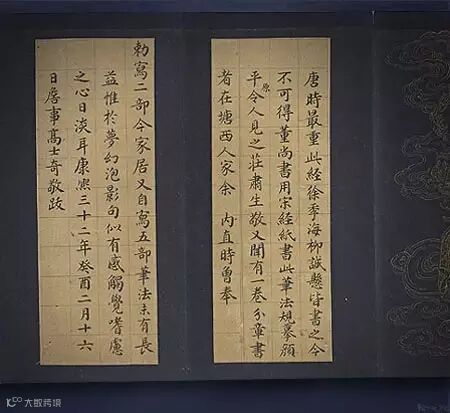 唐時最重此經徐季海柳誠懸皆書之今
不可得董尚書用宋經紙書此筆法規摹顏
平原令人見之莊肅生敬又聞有一卷分章書
者在塘西人家余 內直時曾奉
勅寫二部今家居又自寫五部筆法未有長
益惟於夢幻泡影句似有感觸覺嗜慮
之心日淡耳康熙三十二年癸酉二月十六
日詹事高士奇敬跋
大数跨境